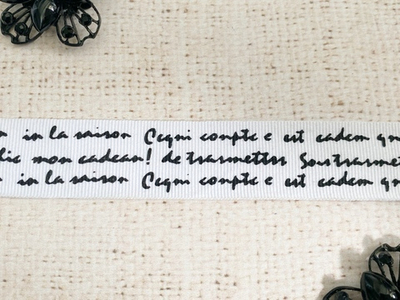 in la saison Cequi conpte e est cadem qu
mon cadeau! de trasmettrs Sous trasmet
in la saison Cequi conpte e est cadem qu